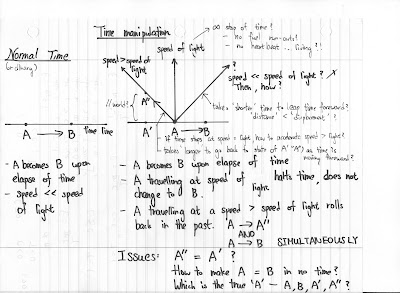 Normal Time
(ordinary)
A → B time line
- A becomes B upon
elapse of time
- speed << speed
of light
Time manipulation
∞ stop of time?
- no fuel run-outs!
- no heart beat ... living?!
speed of light
speed > speed of
light
speed << speed of light? ✗
Then, how?
// world?
A"
takes 'shorter' time to leap time forward?
'distance' < 'displacement'?
A' A → B
- if time stops at speed = light, how to accelerate speed > light?
- takes longer to go back to state of A' (A") as time is
moving forward?
- A becomes B upon elapse of time
- A travelling at speed of light halts time, does not
change to B.
- A travelling at a speed > speed of light rolls
back in the past. A → A"
AND
A → B SIMULTANEOUSLY
Issues: A" = A' ?
How to make A = B in no time?
Which is the true 'A' - A, B, A', A" ?